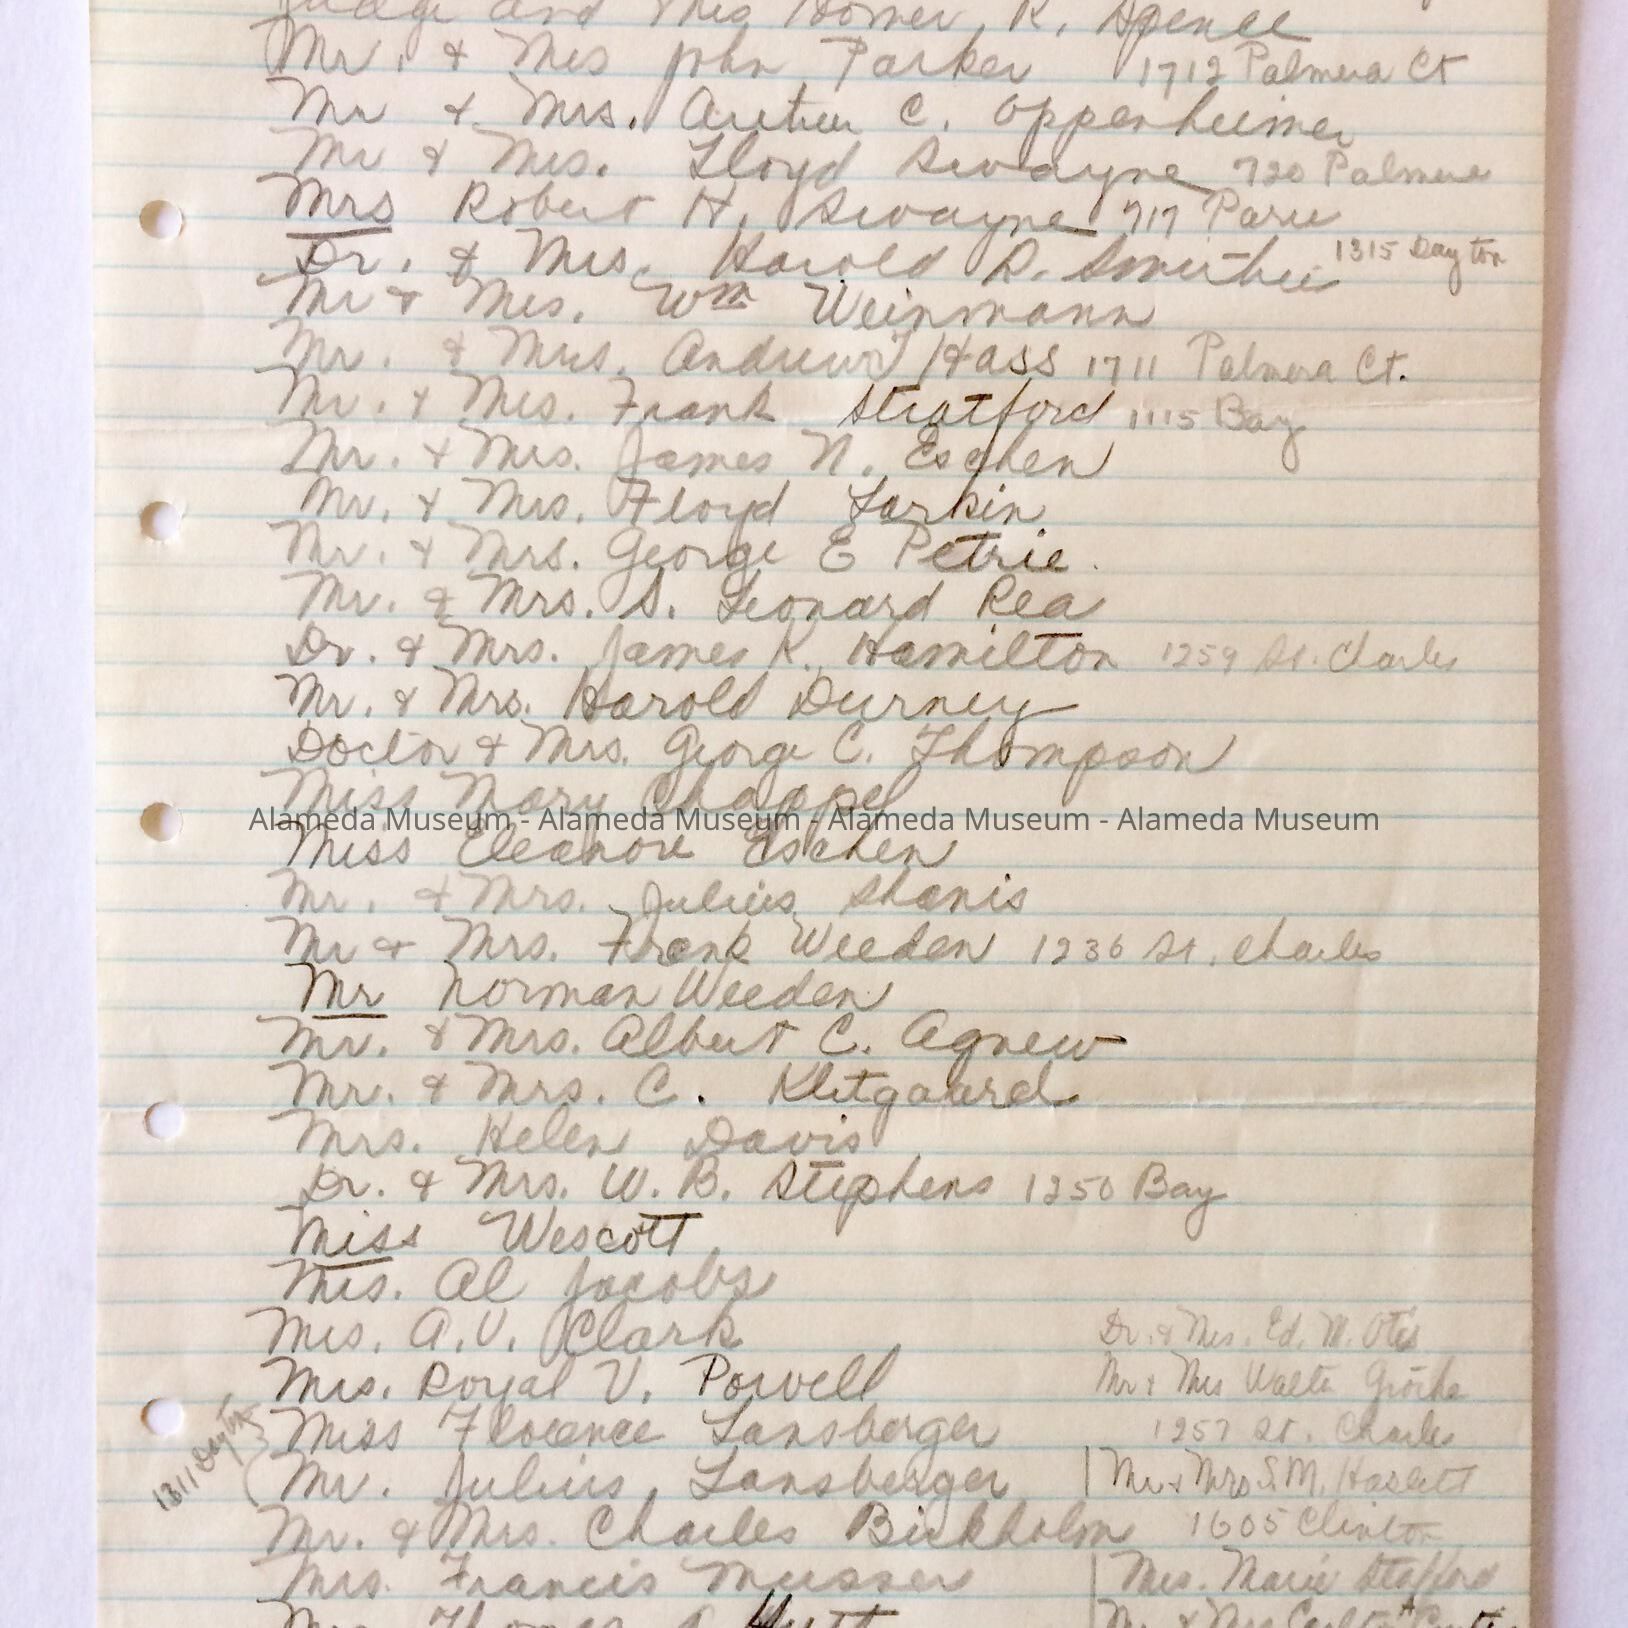 Judge and Mrs Homer R. Spence
Mr. & Mrs John Parker 1712 Palmera Ct
Mr & Mrs. Arthur C. Oppenheimer
Mr & Mrs. Lloyd Swayne 720 Palmera
Mrs Robert H. Swayne 717 Paru
Dr. & Mrs. Harold D. 1315 Dayton
Mr & Mrs. Wm Weinmann
Mr. & Mrs. Andrew Hass 1711 Palmera Ct.
Mr. & Mrs. Frank Stratford 1115 Bay
Mr. & Mrs. James N. Eschen
Mr. & Mrs. Floyd Larkin
Mr. & Mrs. George E Petrie.
Mr. & Mrs. S. Leonard Rea
Dr. & Mrs. James K. Hamilton 1259 St. Charles
Mr. & Mrs. Harold Durney
Doctor & Mrs. George C. Thompson
Miss Mary Chappel
Alameda Museum - Alameda Museum - Alameda Museum - Alameda Museum
Miss Eleanore Eschen
Mr. & Mrs. Julius Shanis
Mr & Mrs. Frank Weeden 1236 St. Charles
Mr Norman Weeden
Mr. & Mrs. Albert C. Agnew
Mr. & Mrs. C. Klitgaard
Mrs. Helen Davis
Dr. & Mrs. W. B. Stephens 1250 Bay
Miss Wescott
Mrs. Al Jacobs
Mrs. A.V. Clark
Mrs. Royal V. Powell
Miss Florence Lansberger
1311 Dayton
Mr. Julius Lansberger
Mr. & Mrs. Charles Birkholm
Mrs. Francis Musser
Thomas
Dr. & Mrs. Ed. W. Otis
Mr & Mrs Walter
1257 St. Charles
Mr & Mrs S.M. Haslett
1605 Clinton
Mrs. Marie Stafford
Mr & Mrs